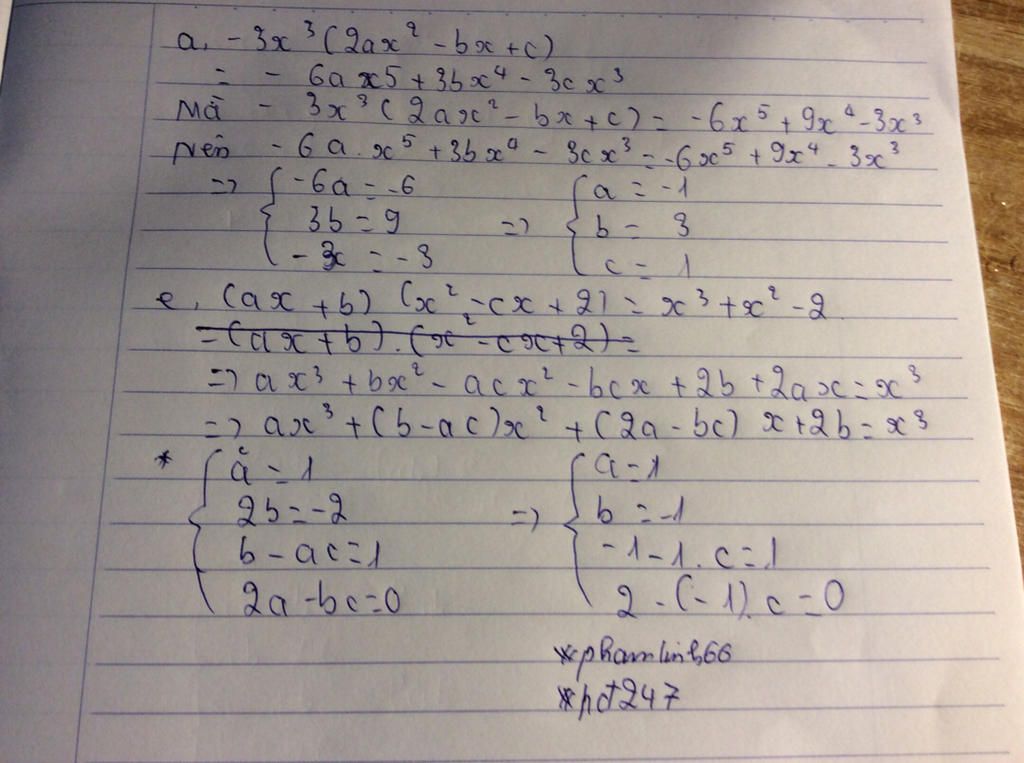 a, -3x³(2ax² - bx + c)
= - 6ax5 + 3bx⁴ - 3cx³
Mà - 3x³(2ax² - bx + c) = -6x⁵ + 9x⁴ - 3x³
Nên - 6a.x⁵ + 3bx⁴ - 3cx³ = -6x⁵ + 9x⁴ - 3x³
=> { -6a = -6 => { a = -1
3b = 9 b = 3
- 3x = -3 c = 1
e, (ax + b) (x² - cx + 2) = x³ + x² - 2
= (ax + b).(x² - cx + 2) =
=> ax³ + bx² - acx² - bcx + 2b + 2ax = x³
=> ax³ + (b - ac)x² + (2a - bc) x + 2b = x³
* { a = 1 => { a = 1
2b = -2 b = -1
b - ac = 1 -1 - 1.c = 1
2a - bc = 0 2 - (-1).c = 0
*phamlinh66
*hdt247